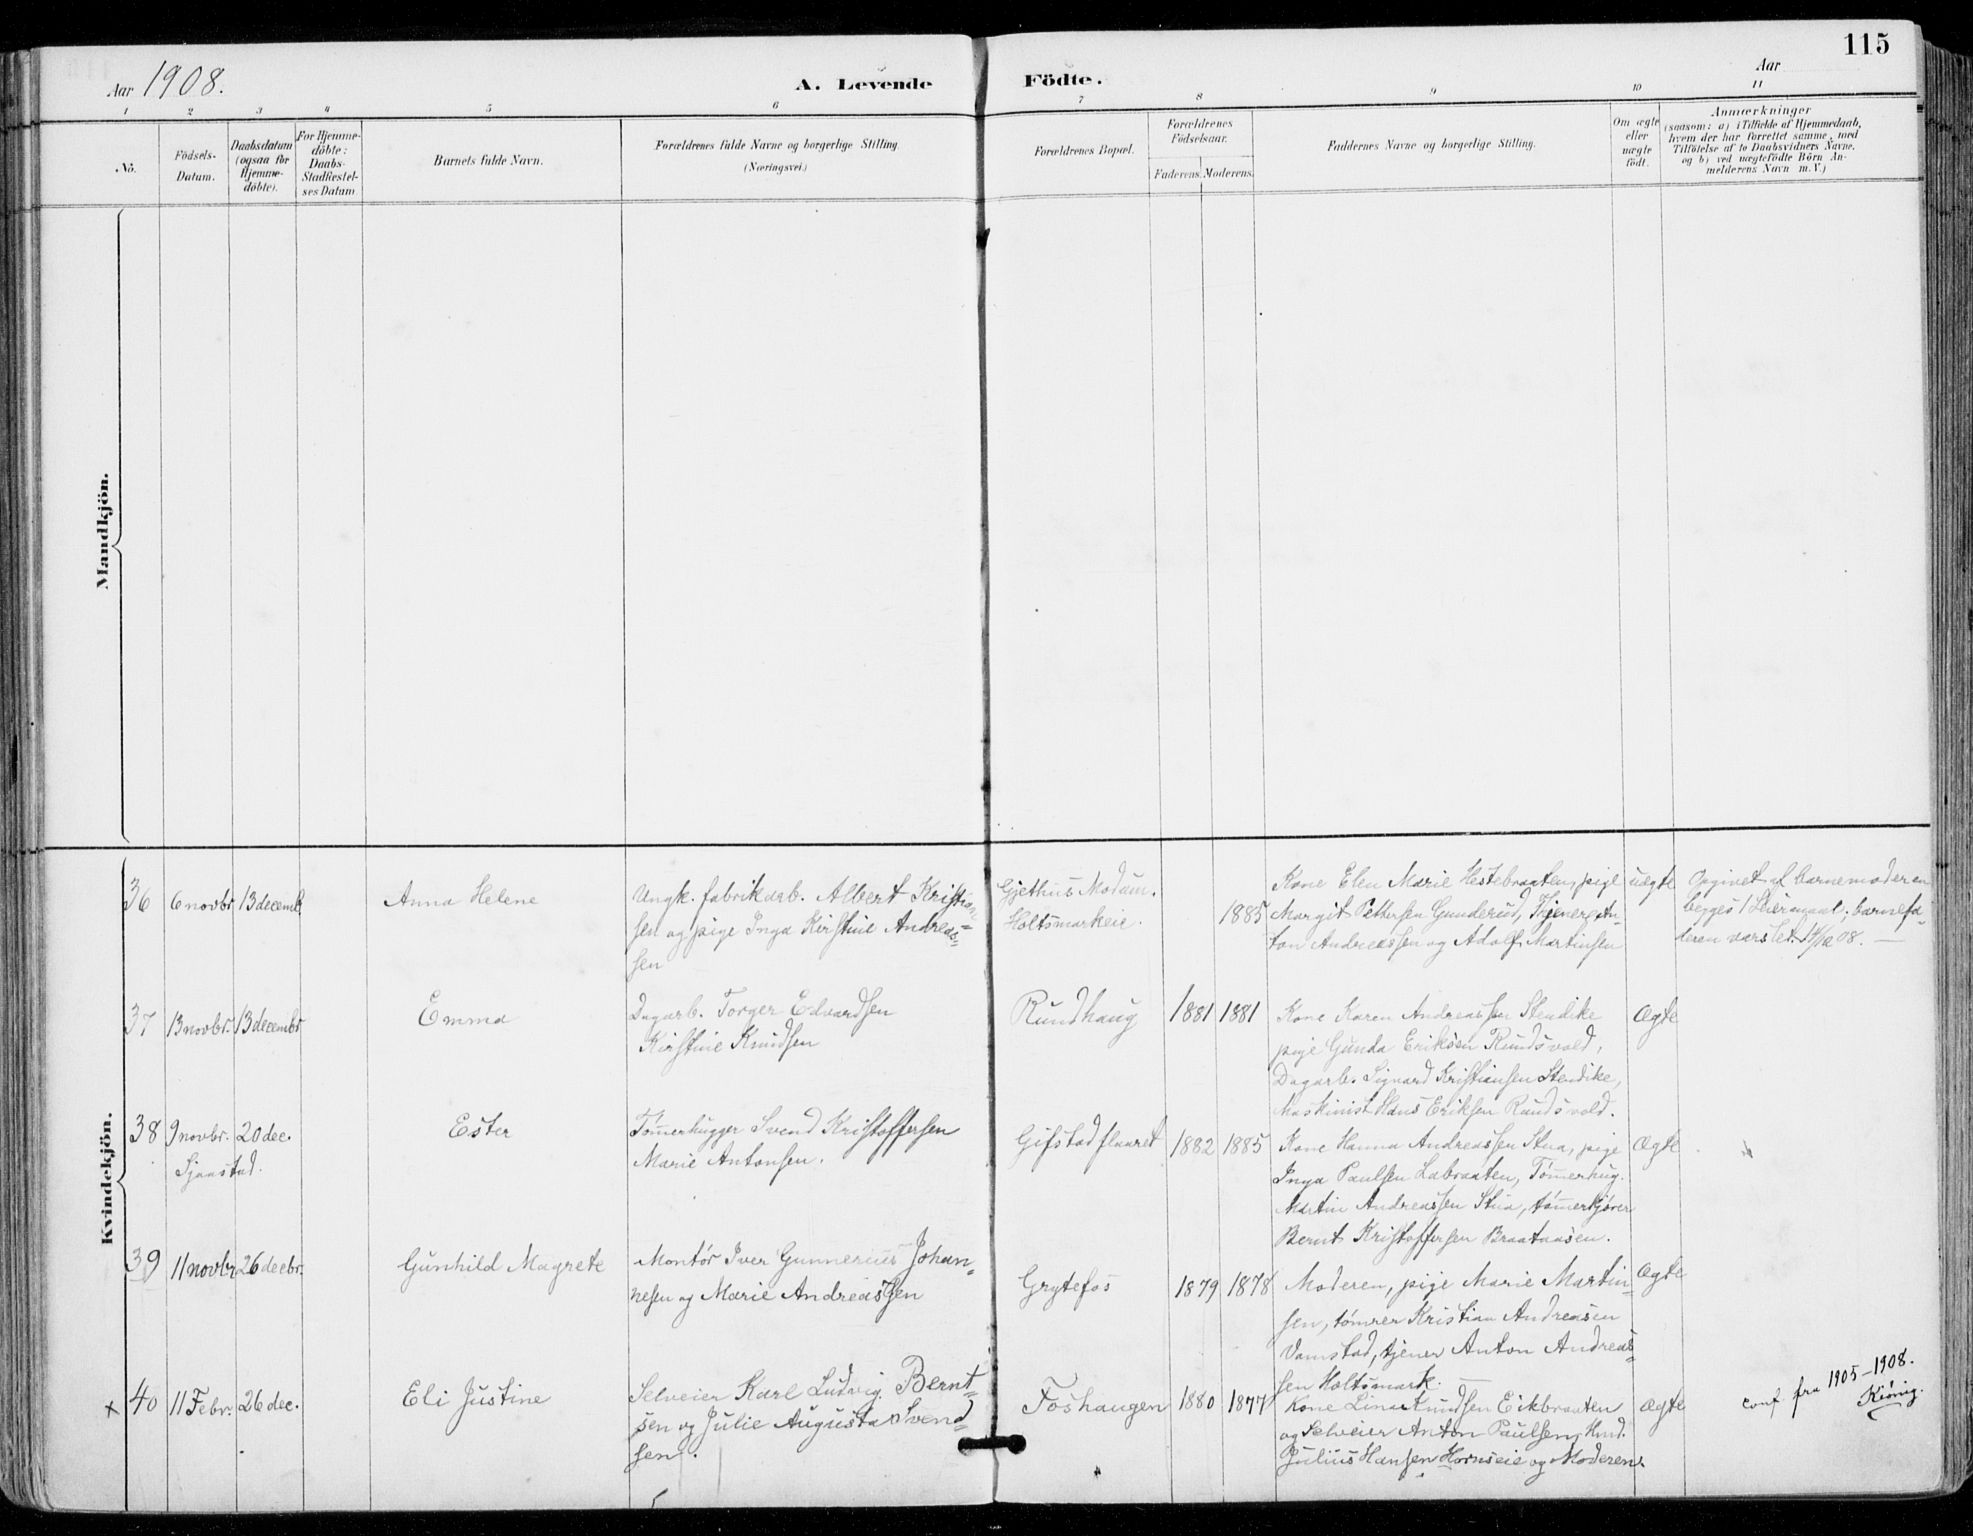 115
Aar 1908.
A. Levende Födte.
Aar
1 2 3 4 5 6 7 8 9 10 11
No.
Födsels-
Datum.
Daabsdatum
(ogsaa for
Hjemme-
döbte).
For Hjemme-
döbte:
Daabs-
Stadfestel-
ses Datum.
Barnets fulde Navn.
Forældrenes fulde Navne og borgerlige Stilling
(Næringsvei.)
Forældrenes Bopæl.
Forældrenes
Födselsaar.
Faderens. Moderens.
Faddernes Navne og borgerlige Stilling.
Om ægte
eller
uægte
født.
Anmærkninger
(saasom: a) i Tilfælde af Hjemmedaab,
hvem der har forrettet samme, med
Tilföielse af to Daabsvidners Navne.
og b) ved uægtefödte Börn An-
melderens Navn m. V.)
Mandkjön.
Kvindekjön.
36 6 novbr 13 decemb.
Anna Helene
Ungk. fabrikarb. Albert Kristian-
sen og pige Inga Kirstine Andreas-
sen
Gjethus Modum.
Holtsmarkeie.
1885
Kone Elen Marie Hestebraaten, pige
Margit Pettersen Gunderud, Tjener An-
ton Andreassen og Adolf Martinsen
uægte
Opgivet af barnemoderen
begges 1 Leiermaal; barnefa-
deren varslet 14/12 08. —
37 13 novbr. 13 decembr
Emma
Dagarb. Torger Edvardsen
Kirstine Knudsen
Rundhaug
1881 1881
Kone Karen Andreassen Stendike
pige Gunda Eriksen Rundsvold,
Dagarb. Sigvard Kristiansen Stendike,
Maskinist Hans Eriksen Rundsvold.
Ægte
38 9 novbr. 20 dec.
Sjaastad.
Ester
Tømerhugger Svend Kristoffersen
Marie Antonsen.
Gifstadflaaret
1882 1885
Kone Hanna Andreassen Stua, pige
Inga Paulsen Labraaten, Tømerhug.
Martin Andreassen Stua, tømerkjører
Bernt Kristoffersen Braataasen.
Ægte
39 11 novbr 26 decbr.
Gunhild Magrete
Montør Iver Gunnerius Johan-
nesen og Marie Andreassen
Grytefos
1879 1878
Moderen, pige Marie Martin-
sen, tømrer Kristian Andreasen
Vamstad, tjener Anton Andreas-
sen Holtsmark. —
Ægte
x 40 11 Febr. 26 dec.
Eli Justine
Selveier Karl Ludvig Bernt-
sen og Julie Augusta Svend-
sen.
Foshaugen
1880 1877
Kone Lina Knudsen Eikbraaten
og Selveier Anton Paulsen, Hmd.
Julius Hansen Hornseie og Moderen.
Ægte
conf. fra 1905–1908.
Kiønig.